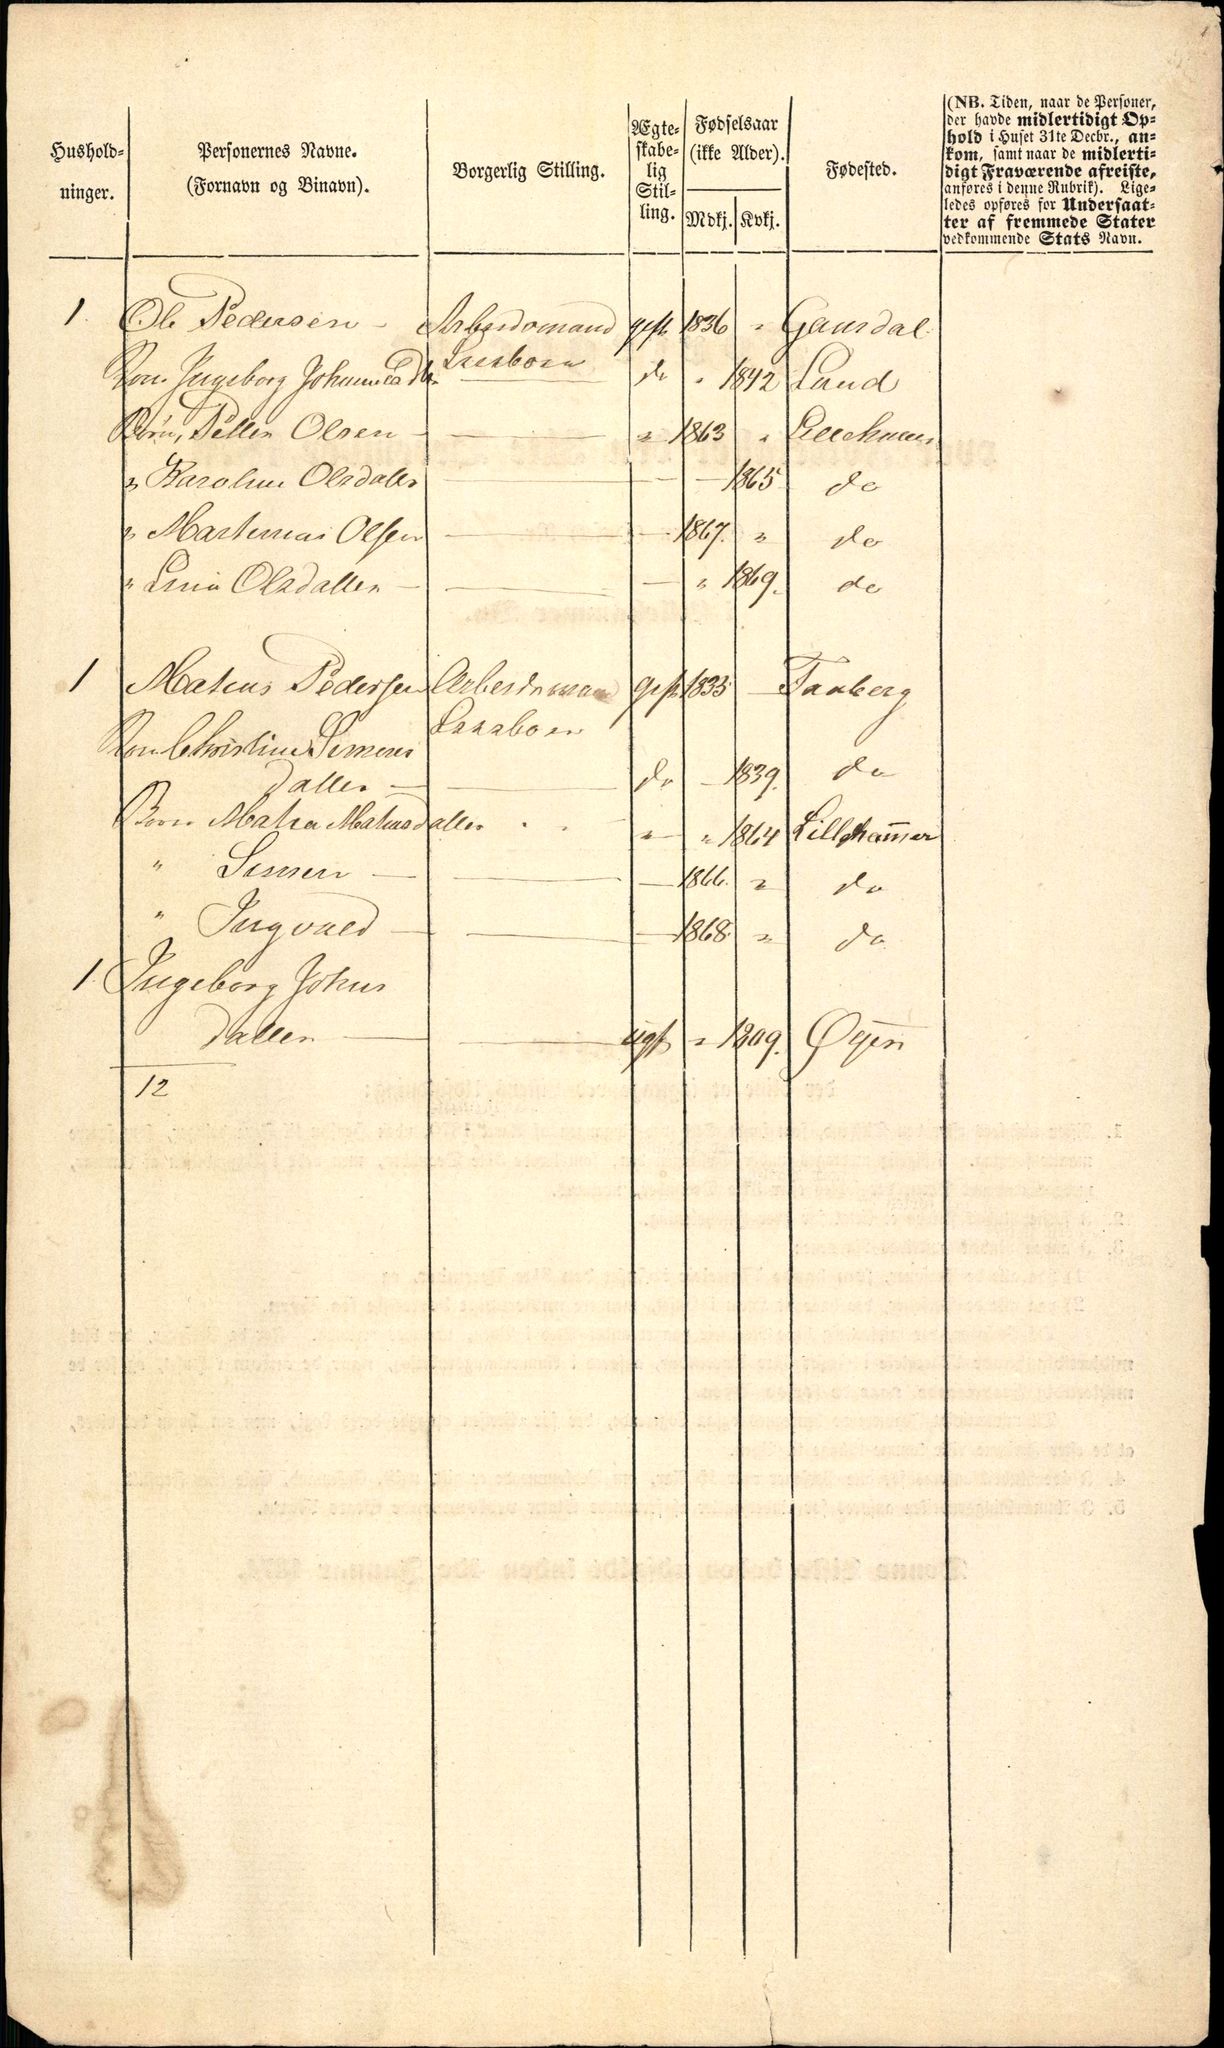 Hushold-
ninger.
Personernes Navne.
(Fornavn og Binavn).
Borgerlig Stilling.
Ægte-
skabe-
lig
Stil-
ling.
Fødselsaar
(ikke Alder).
Mdkj. Kvkj.
Fødested.
(NB. Tiden, naar de Personer,
der havde midlertidigt Op-
hold i Huset 31te Decbr., an-
kom, samt naar de midlerti-
digt Fraværende afreiste,
anføres i denne Rubrik). Lige-
ledes opføres for Undersaat-
ter af fremmede Stater
vedkommende Stats Navn.
1. Ole Pedersen - Arbeidsmand gift 1836 " Gausdal
Kone Ingeborg do " 1842 Land
Børn, Petter Olsen - " 1863 "
" Karoline Olsdatter 1865 do
" Martinius Olsen 1867. " do
" Olsdatter - " 1869. do
1 Mateus Pedersen gift 1835 Faaberg
Kone Christine Simens
datter - do 1839. do
Børn Matea Mateusdatter " " 1864 Lillehammer
" Simen - 1866. " do
" Ingvald - 1868. " do
1 Ingeborg Johns
datter ugf " 1809. Øyen
12